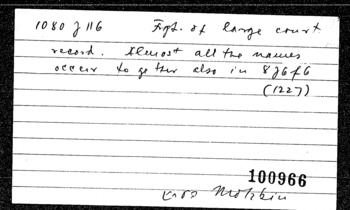 1080 J 116 Fgt. of large court
record. Almost all the names
occur together also in 8 J 6 f 6
(1227)
100966